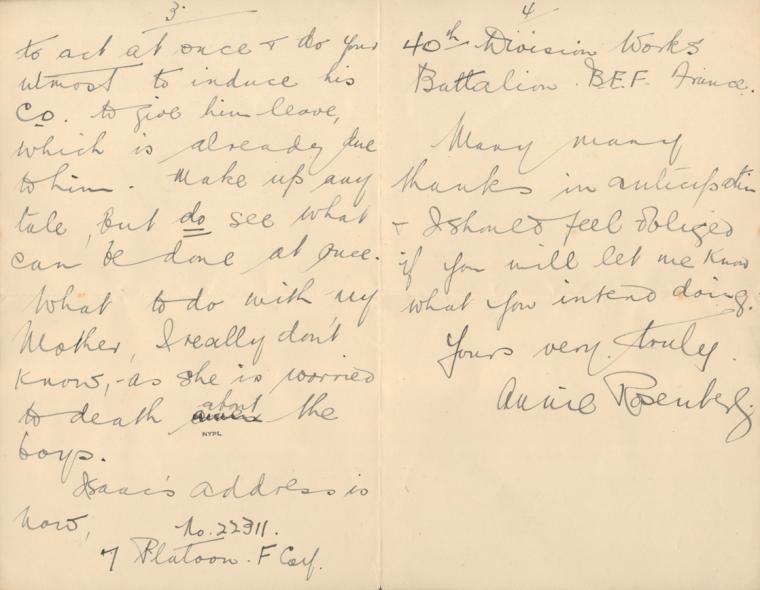 3
to act at once & do your
utmost to induce his
Co. to give him leave,
which is already due
to him. Make up any
tale, but do see what
can be done at once.
What to do with my
Mother, I really don't
know, - as she is worried
to death about the
NYPL
boys.
Isaac's address is
now, No. 22311.
7 Platoon. F Coy.
4
40th Division Works
Battalion. B.E.F. France.
Many many
thanks in anticipation
& I should feel obliged
if you will let me know
what you intend doing.
Yours very truly.
Annie Rosenberg.